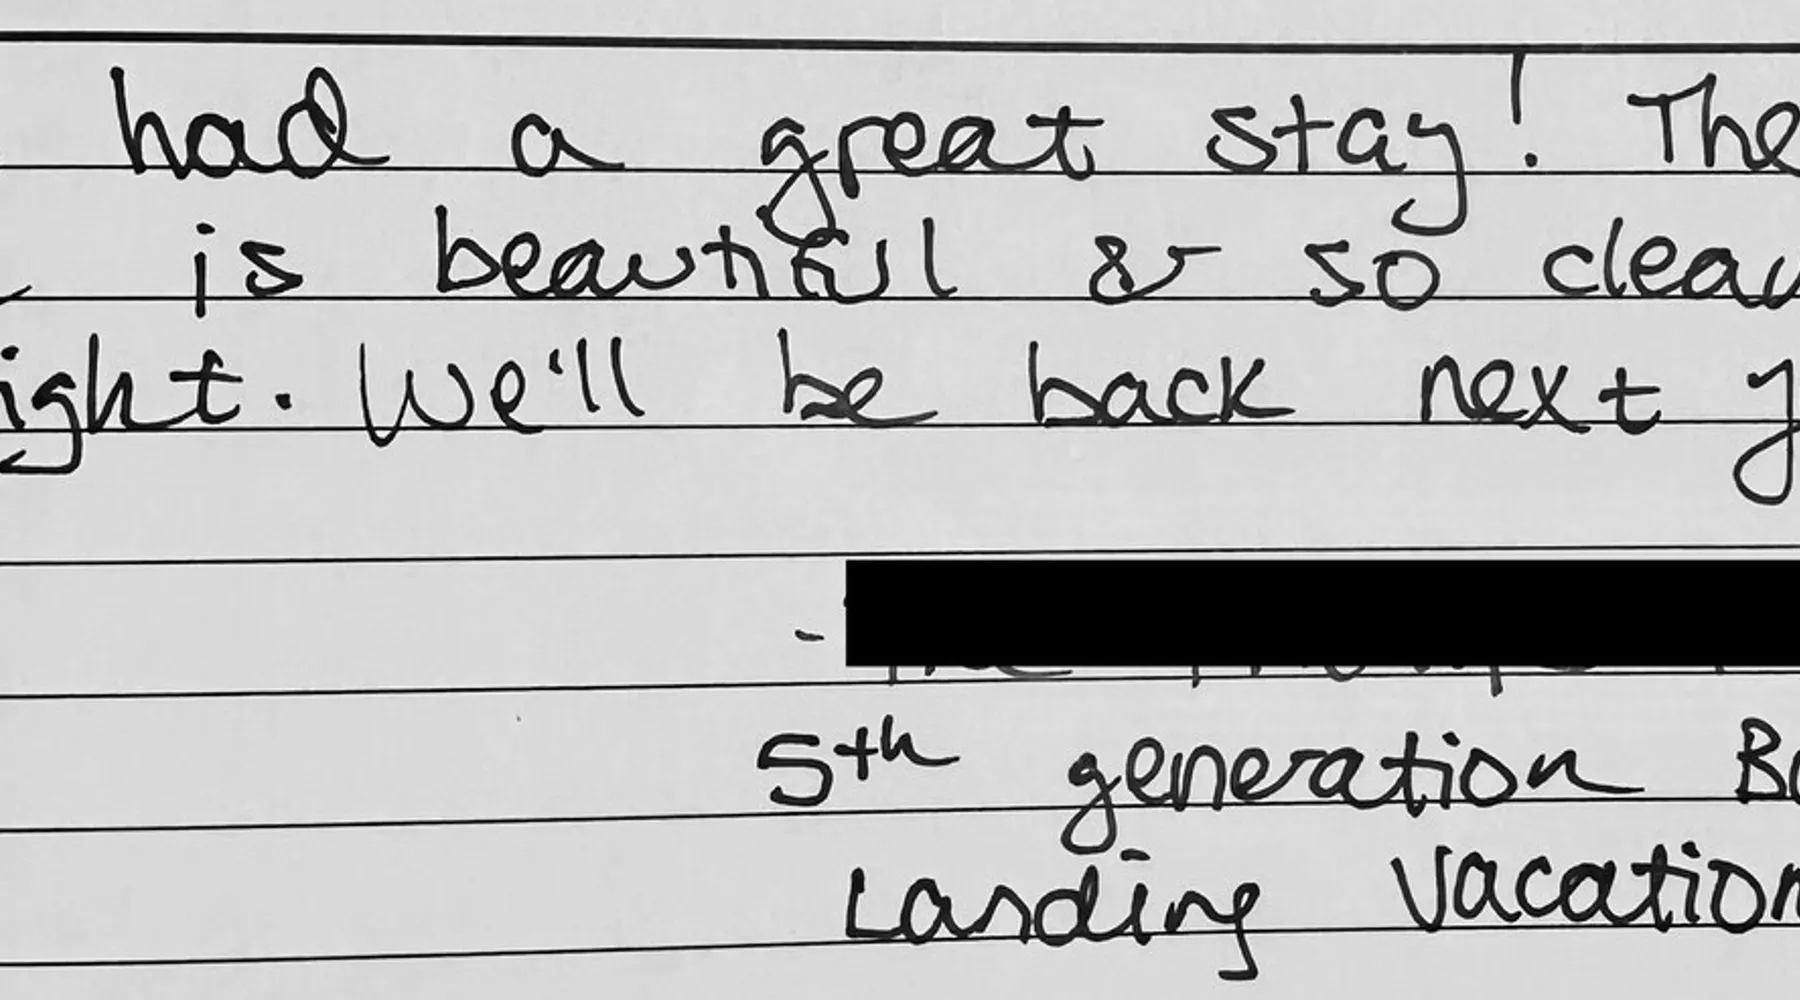 had a great stay! The
is beautiful & so clean
ight. We'll be back next y
-
5th generation Bo
Landing vacation